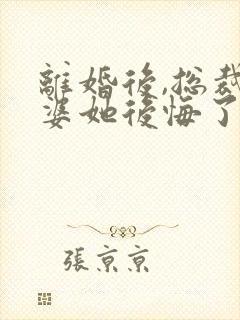 離婚後,総裁
婆她後悔了
張京京